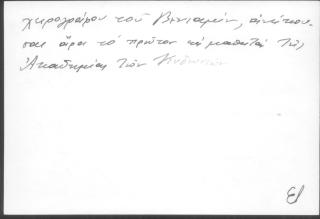 χειρογράφου τοῦ Βενιαμίν, ἀνέπτυσ-
σαι ἄραι τὸ πρῶτον οἱ μαθηταὶ τῆς
Ἀκαδημίας τῶν Κυδωνιῶν